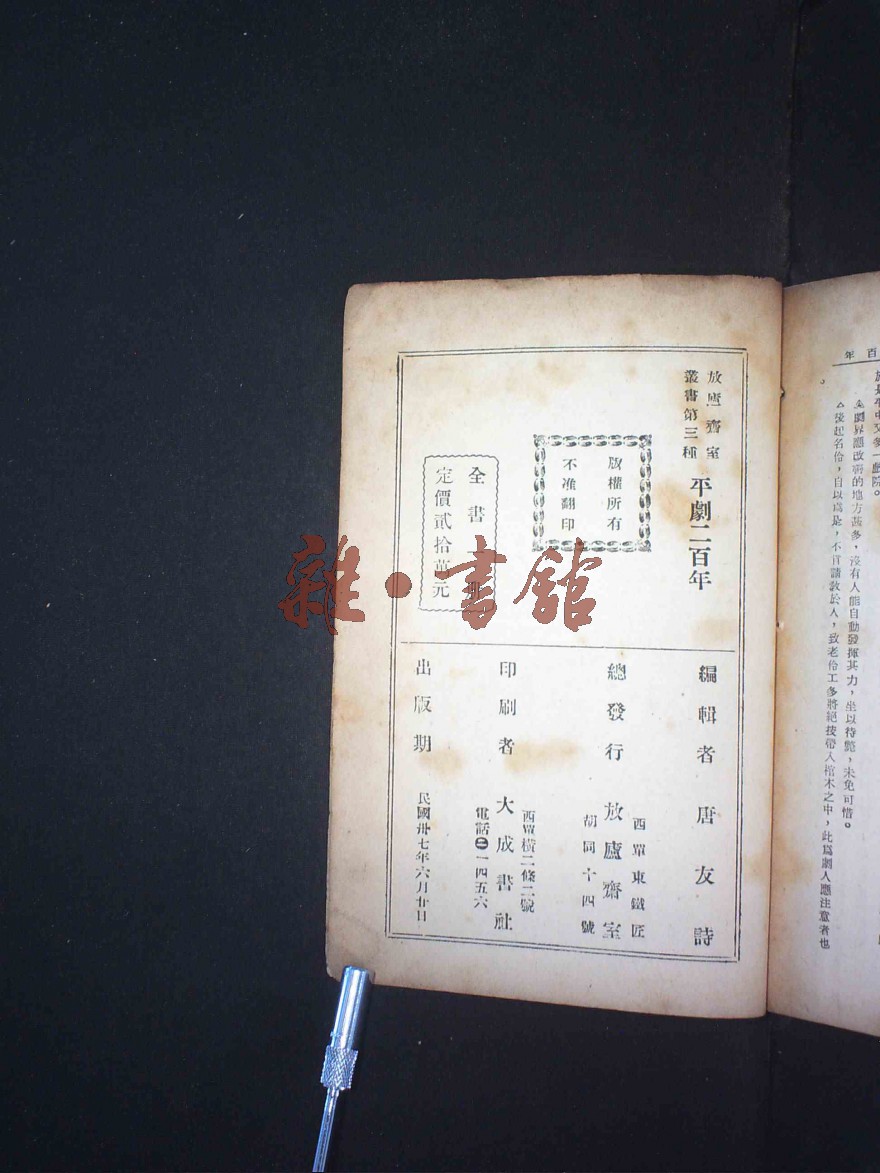 百年
於是平中又多一戲院。
劇界應改革的地方甚多，沒有人能自動發揮其力，坐以待斃，未免可惜。
後起名伶，自以爲是，不肯請教於人，致老伶工多將絕技帶入棺木之中，此爲劇人應注意者也
放廬齋室
叢書第三種
平劇二百年
版權所有
不准翻印
全書
定價貳拾萬元
編輯者 唐友詩
總發行 放廬齋室
西單東鐵匠
胡同十四號
印刷者 大成書社
西單橫二條二號
電話㊁一四五六
出版期 民國卅七年六月廿日
雜·書館